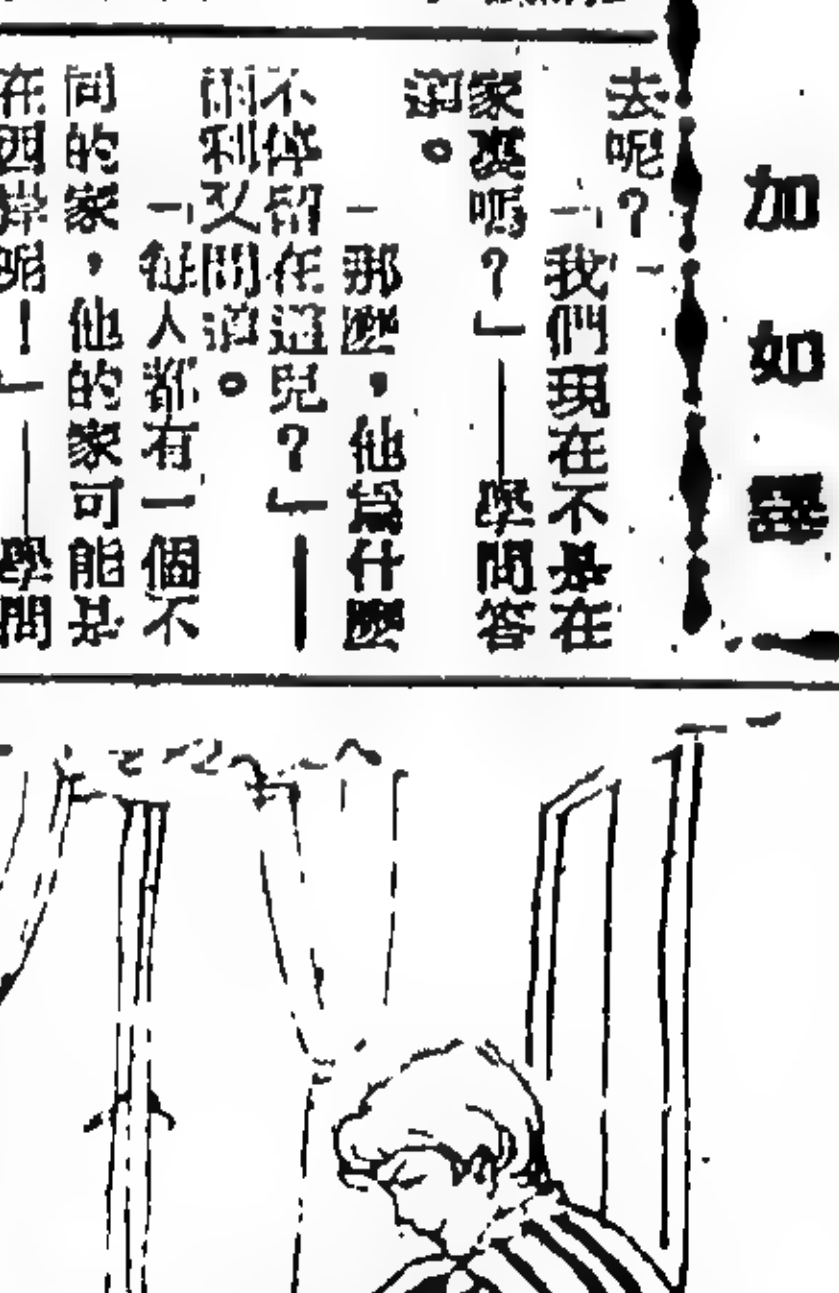 加如譯
去呢？」
「我們現在不是在
家裏嗎？」──學問答
道。
「那麼，他為什麼
不停留在這兒？」──
雨利又問道。
「每人都有一個不
同的家，他的家可能是
在西岸呢！」──學問